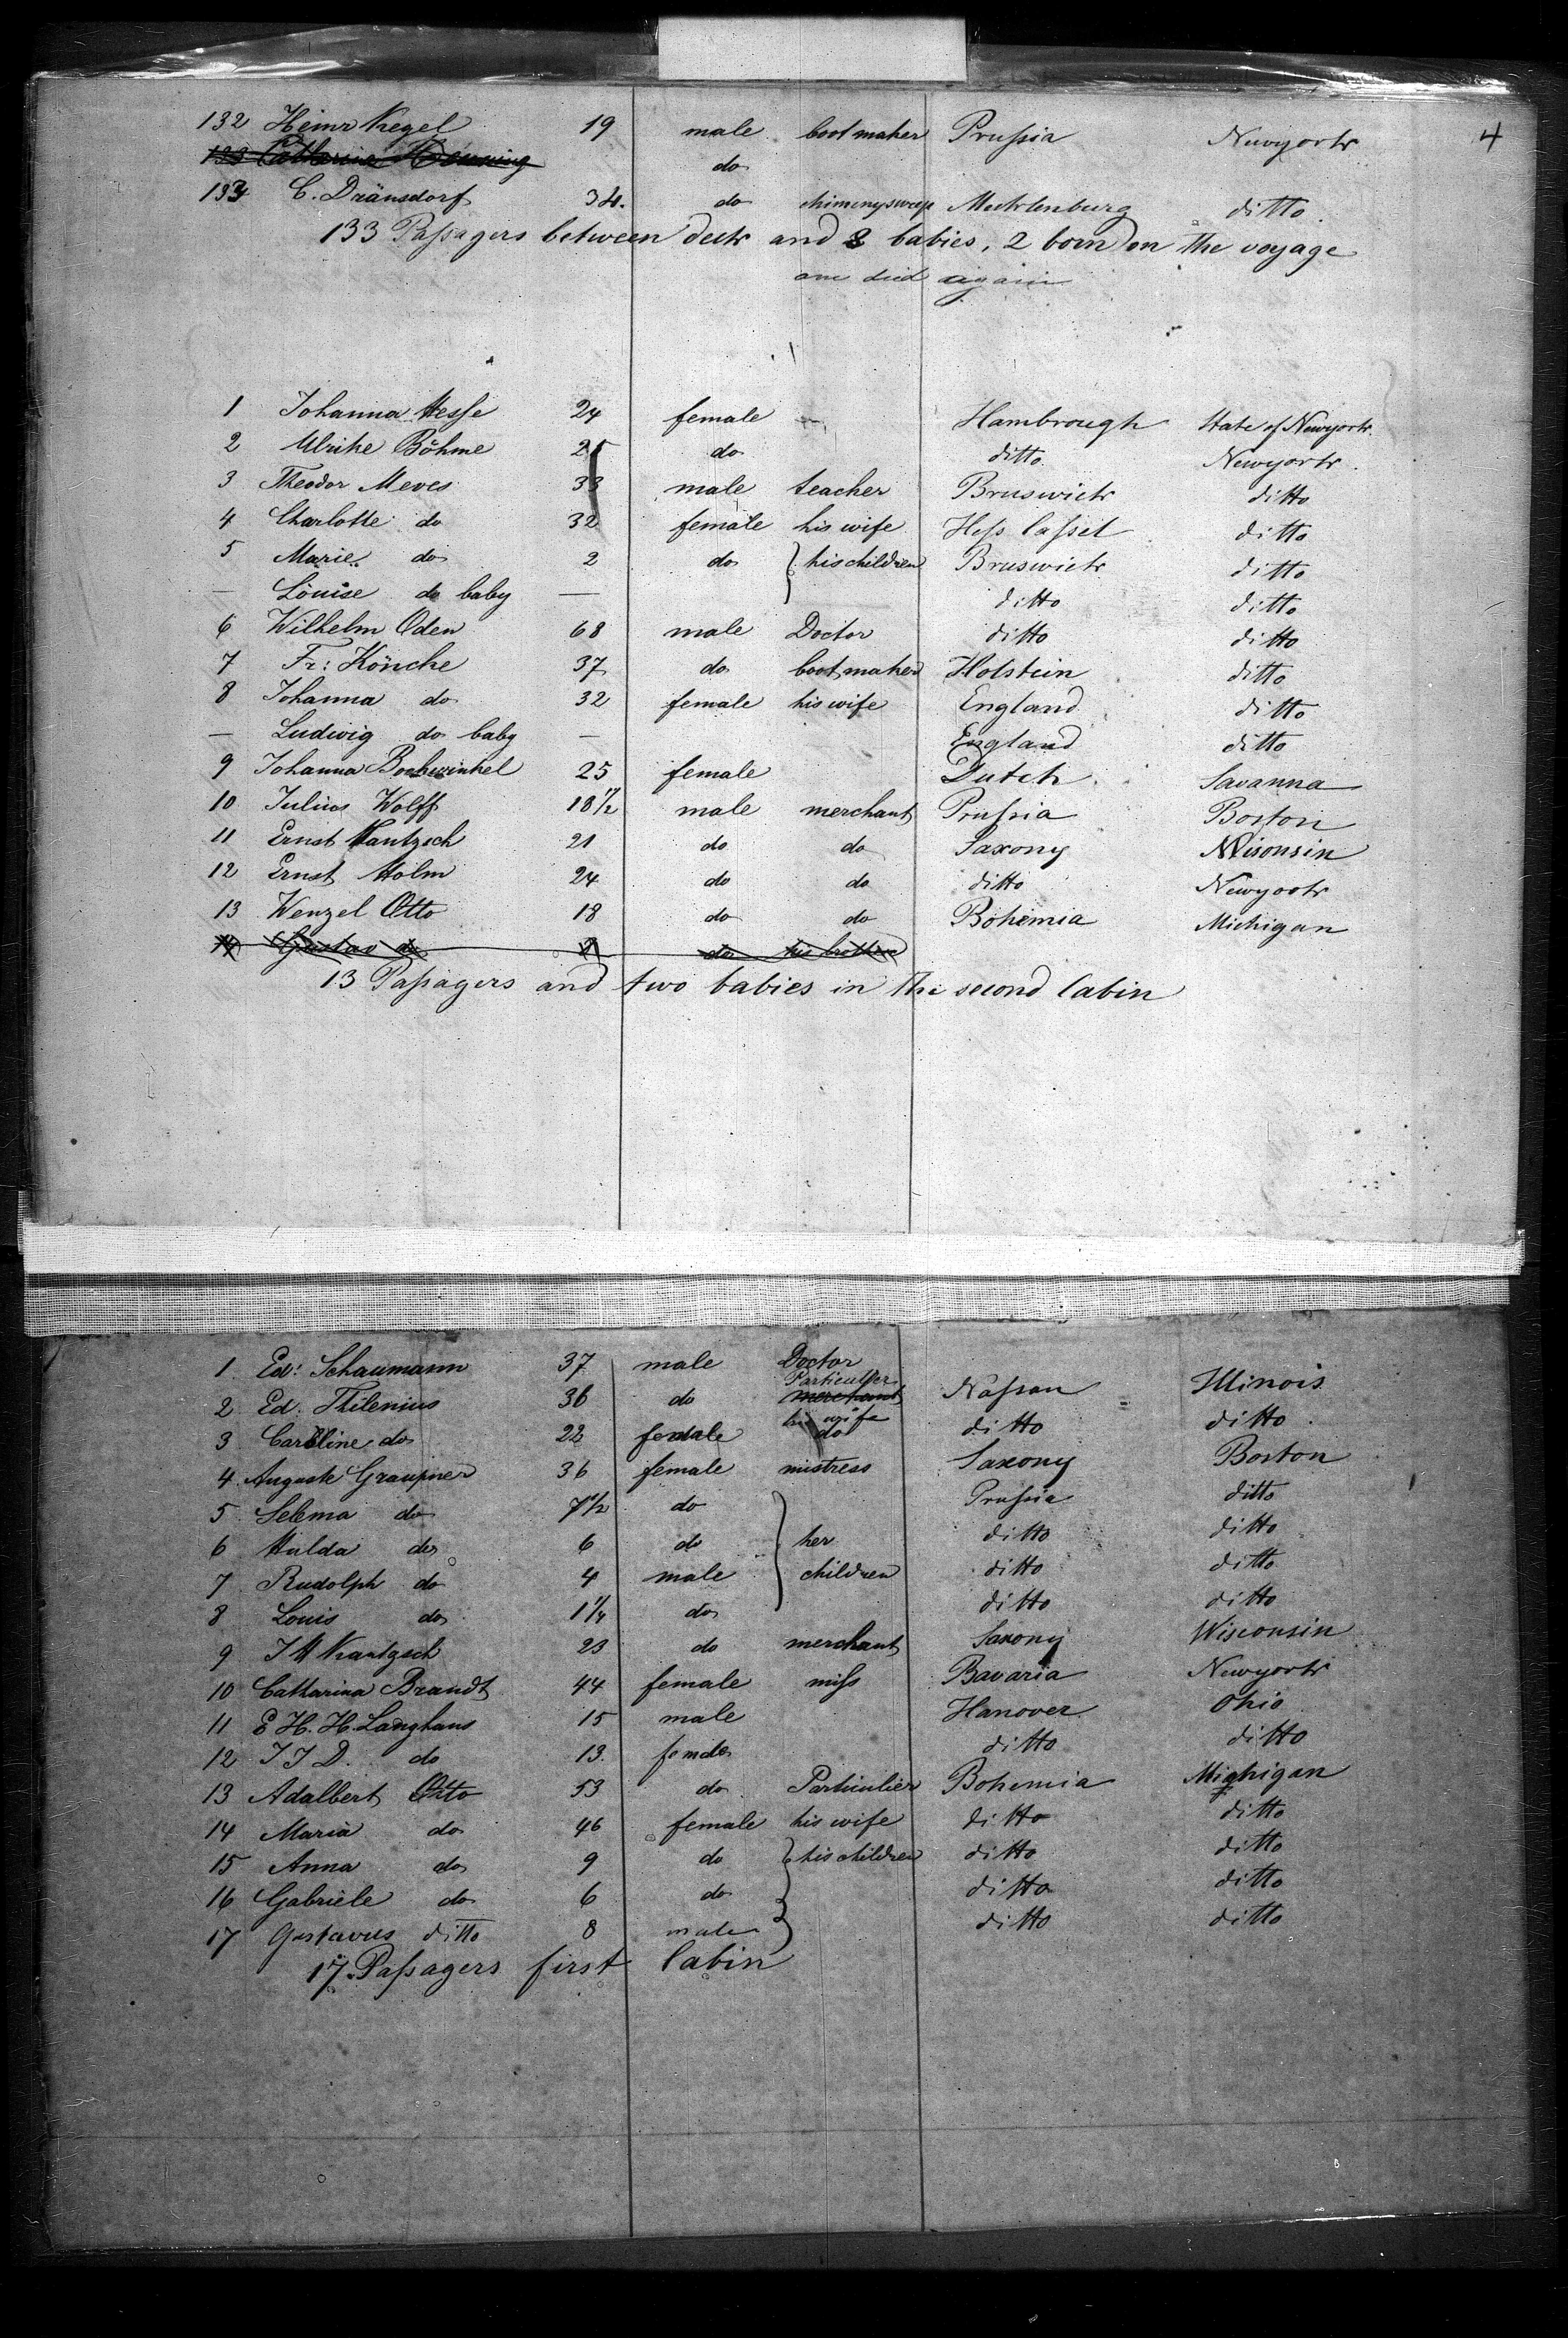 4
132 Heinr Kegel 19 male bootmaker Prussia Newyork
133 Catharine Henning do
133 C. Dränsdorf 34. do chimenysweep Mecklenburg ditto
133 Passagers between deck and 8 babies, 2 born on the voyage
one died again
1 Johanna Hesse 24 female — Hambrough State of Newyork
2 Ulrike Böhme 25 do ditto Newyork
3 Theodor Meves 33 male teacher Bruswick ditto
4 Charlotte do 32 female his wife Hess Cassel ditto
5 Marie do 2 do his children Bruswick ditto
— Louise do baby — ditto ditto
6 Wilhelm Oden 68 male Doctor ditto ditto
7 Fr: Könche 37 do bootmaker Holstein ditto
8 Johanna do 32 female his wife England ditto
— Ludwig do baby — England ditto
9 Johanna Bockwinkel 25 female Dutch Savanna
10 Julius Wolff 18 1/2 male merchant Prussia Boston
11 Ernst Hantzsch 21 do do Saxony Wisonsin
12 Ernst Holm 24 do do ditto Newyork
13 Wenzel Otto 18 do do Bohemia Michigan
14 Gustav do do his brother
13 Passagers and two babies in the second Cabin
1 Ed: Schaumann 37 male Doctor
Particulier
2 Ed. Thilenius 36 do merchant Nassau Illinois
his wife
3 Caroline do 22 female do ditto ditto
4 Auguste Graupner 36 female mistress Saxony Boston
5 Selema do 7 1/2 do Prussia ditto
6 Hulda do 6 do her ditto ditto
7 Rudolph do 4 male children ditto ditto
8 Louis do 1 1/4 do ditto ditto
9 J H Kantzsch 23 do merchant Saxony Wisconsin
10 Catharina Brandt 44 female miss Bavaria Newyork
11 E H. H. Langhans 15 male Hanover Ohio
12 J J D. do 13. female ditto ditto
13 Adalbert Otto 53 do Particulier Bohemia Michigan
14 Maria do 46 female his wife ditto ditto
15 Anna do 9 do his children ditto ditto
16 Gabriele do 6 do ditto ditto
17 Gustavus ditto 8 male ditto ditto
17 Passagers first Cabin